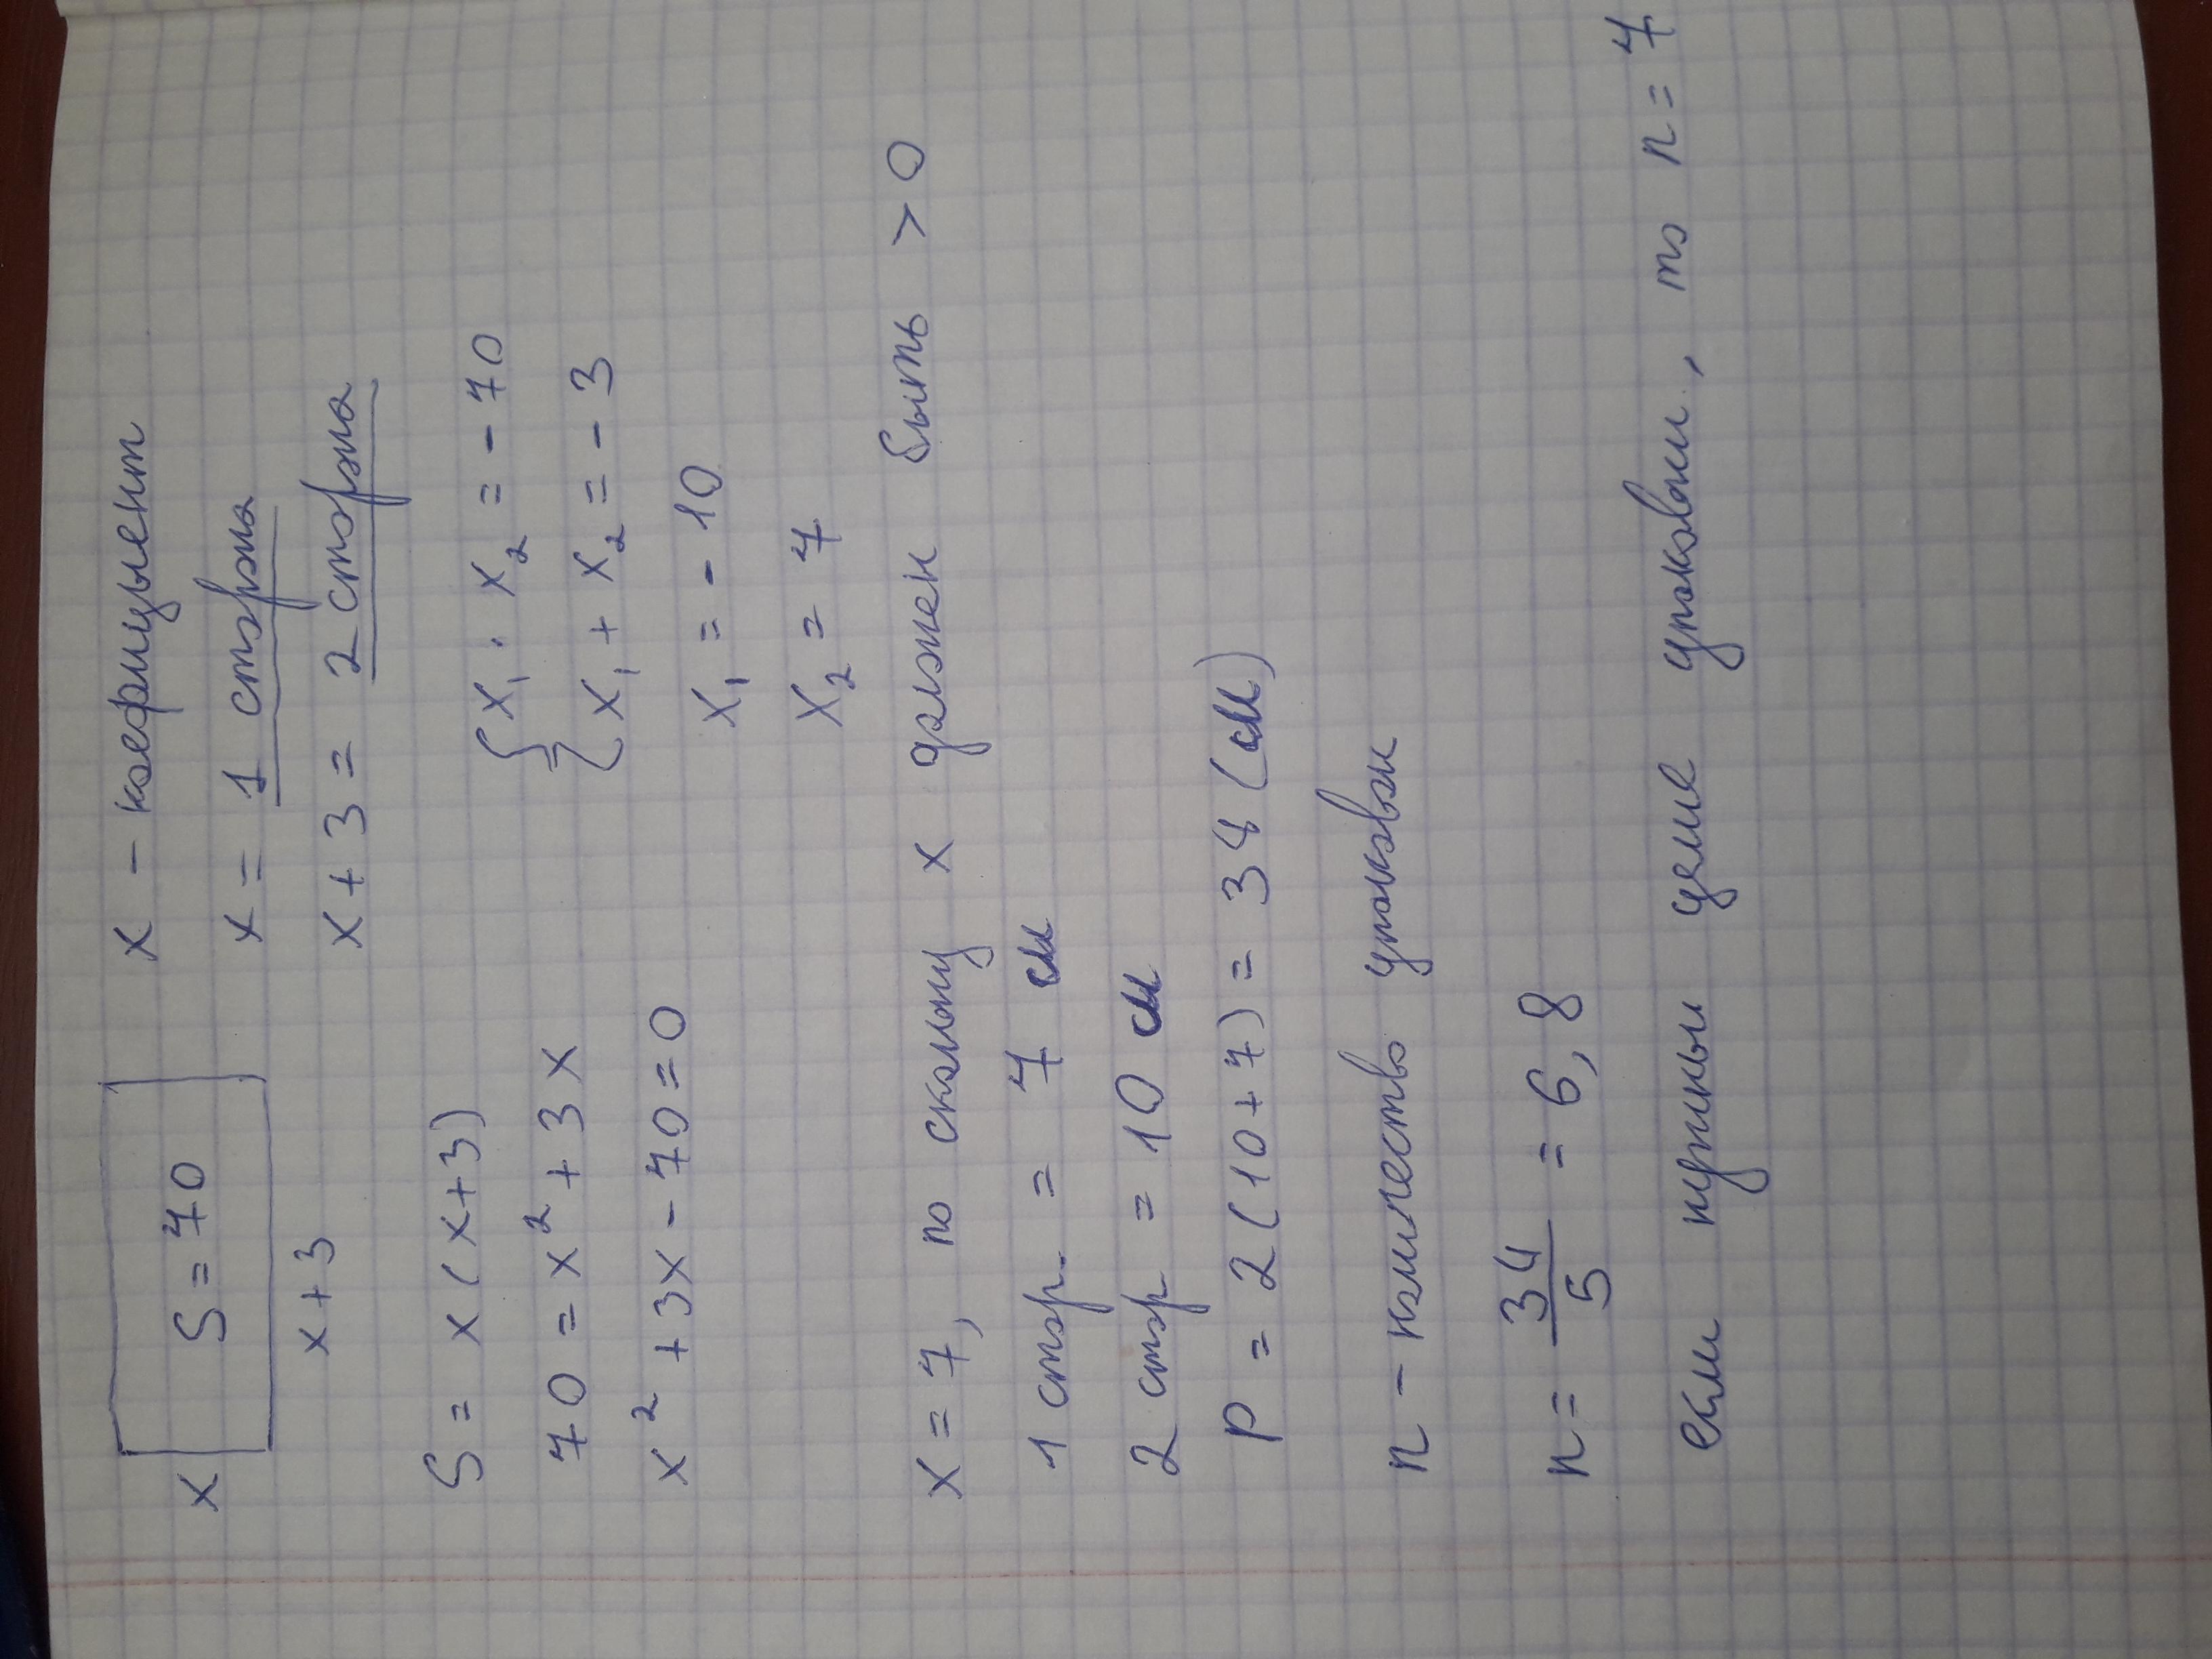 x - коефицыент
x S = 70
x = 1 сторна
x + 3
x + 3 = 2 сторна
S = x (x+3)
{ x₁ · x₂ = - 70
70 = x² + 3x
x₁ + x₂ = - 3
x² + 3x - 70 = 0
x₁ = - 10
x₂ = 7
x = 7, по скольку x должен быть > 0
1 стор. = 7 см
2 стор = 10 см
P = 2 (10 + 7) = 34 (см)
n - количество упаковок
n = 34/5 = 6,8
если нужны целые упаковки, то n = 7